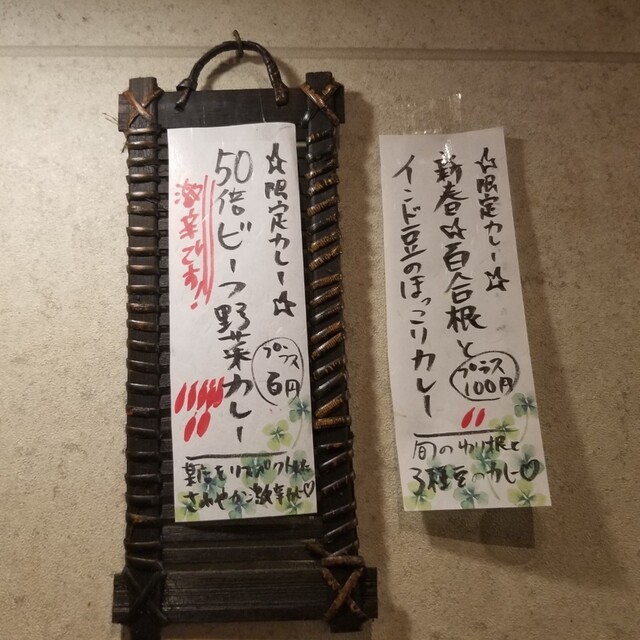 ☆限定カレー☆
新春☆百合根と
インド豆のほっこりカレー
プラス
100円
旬のゆり根と
3種豆のカレー♡
☆限定カレー☆
50倍ビーフ野菜カレー
激辛です!
プラス
6円
さわやか激辛カレー♡